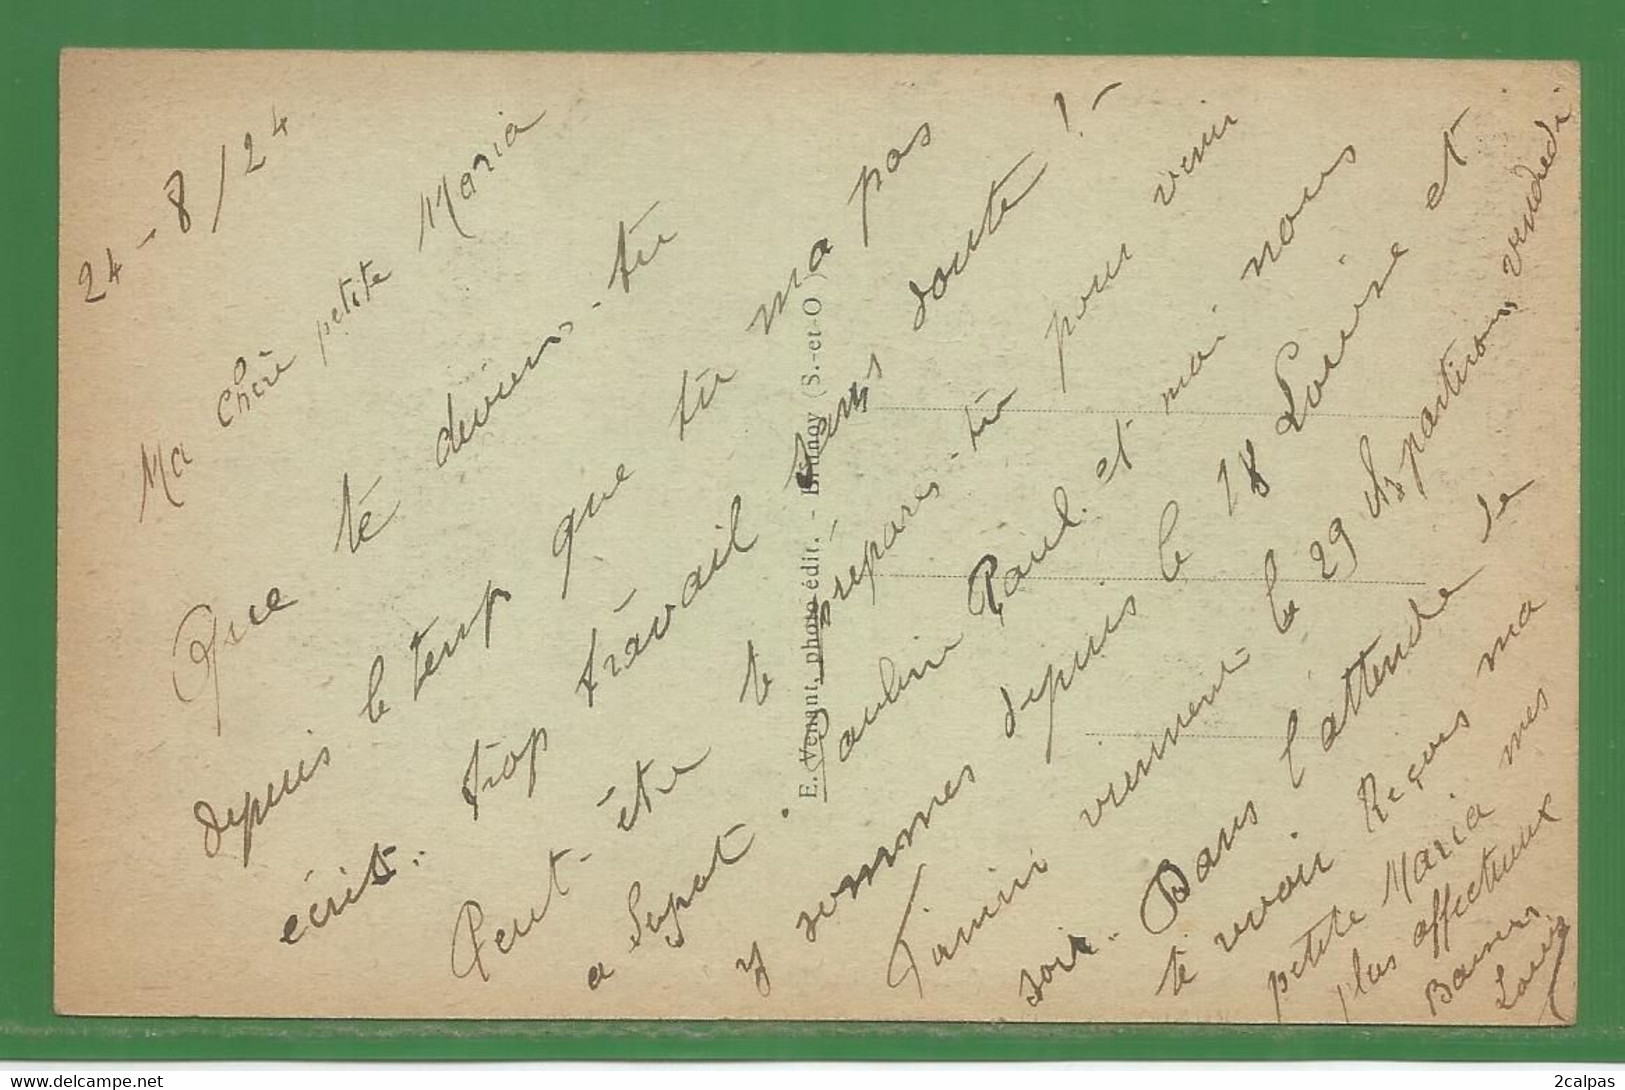 24-8/24
Ma chère petite Maria
Que te deviens-tu
depuis le temps que tu m'a pas
écrit. Trop travail sans doute !-
Peut-être te prépares-tu pour venir
a Supt. Paulin Paul et moi nous
y sommes depuis le 18 Louise et
Firmin viennent le 29 Ils partirons vendredi
soir. Dans l'attende de
te revoir Reçois ma
petite Maria mes
plus affectueux
Baisers
Louis
E. Venant, photo-édit. - Brunoy (S.-et-O)
www.delcampe.net
2calpas